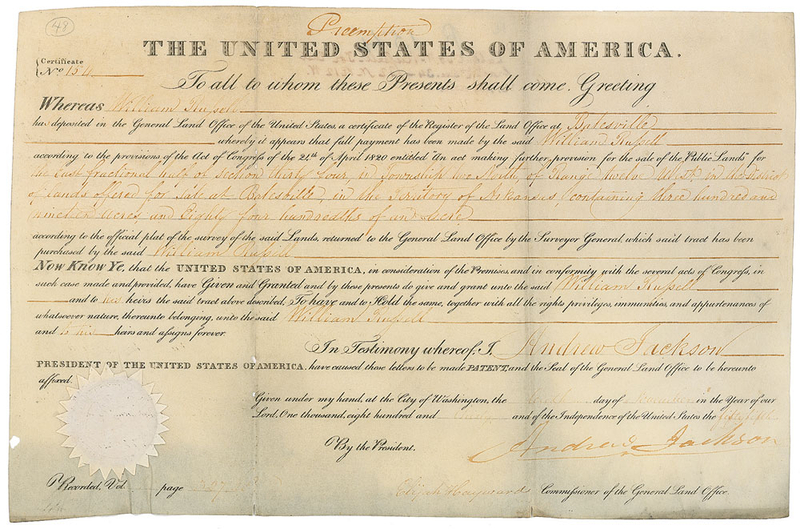 49
Preemption
THE UNITED STATES OF AMERICA.
Certificate
No. 154
To all to whom these Presents shall come, Greeting
Whereas William Russell
has deposited in the General Land Office of the United States, a certificate of the Register of the Land Office at Batesville
whereby it appears that full payment has been made by the said William Russell
according to the provisions of the Act of Congress of the 24th of April 1820 entitled "An act making further provision for the sale of the Public Lands" for
the East fractional half of section thirty four, in Township two North of Range twelve West, in the District
of lands offered for Sale at Batesville, in the Territory of Arkansas, containing three hundred and
nineteen acres and Eighty four hundredths of an Acre
according to the official plat of the survey of the said Lands, returned to the General Land Office by the Surveyor General, which said tract has been
purchased by the said William Russell
Now Know Ye, that the UNITED STATES OF AMERICA, in consideration of the Premises, and in conformity with the several acts of Congress, in
such case made and provided, have Given and Granted and by these presents do give and grant unto the said William Russell
and to his heirs the said tract above described. To have and to Hold the same, together with all the rights privileges, immunities, and appurtenances of
whatsoever nature, thereunto belonging, unto the said William Russell
and to his heirs and assigns forever.
In Testimony whereof, I, Andrew Jackson
PRESIDENT OF THE UNITED STATES OF AMERICA, have caused these letters to be made PATENT, and the Seal of the General Land Office to be hereunto
affixed.
Given under my hand, at the City of Washington, the day of in the Year of our
Lord, One thousand, eight hundred and and of the Independence of the United States the
By the President. Andrew Jackson
Recorded, Vol. page Elijah Hayward Commissioner of the General Land Office.